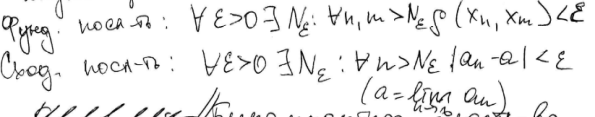 Фунд. посл-ть: ∀ ε>0 ∃ Nε: ∀n,m>Nε ρ(xn, xm)<ε
Сход. посл-ть: ∀ε>0 ∃Nε : ∀n>Nε |an-a|<ε
(a=lim an)